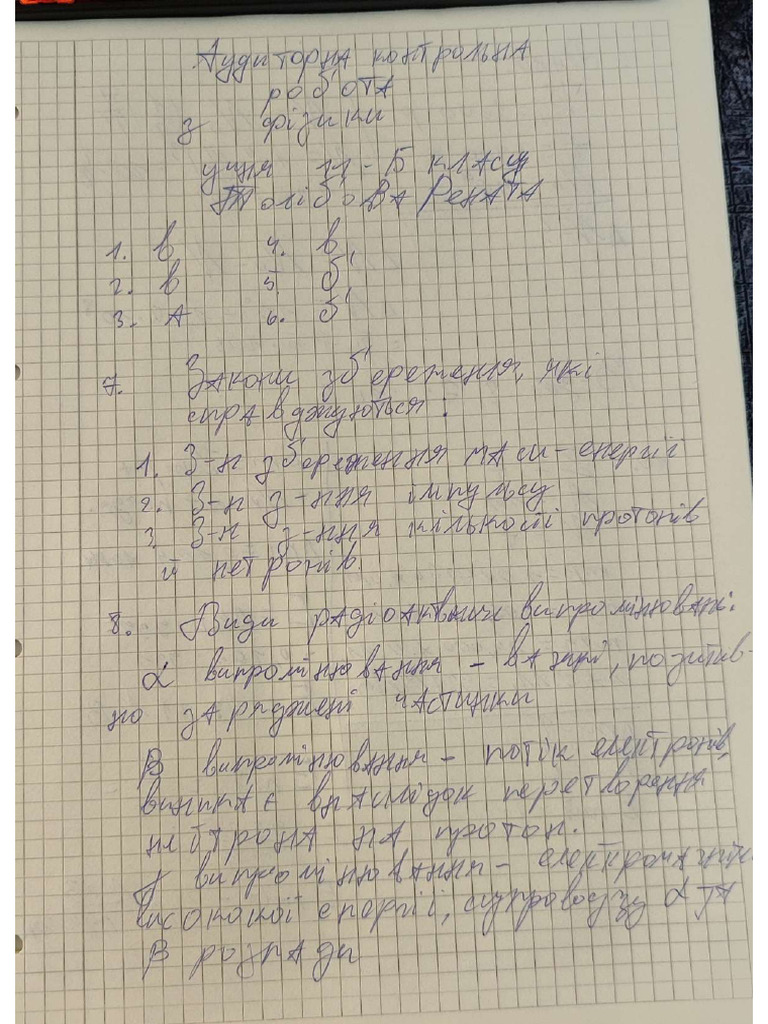 Аудиторна контрольна
робота
з фізики
учня 11-Б класу
Толібова Рената
1. в 4. в
2. в 5. б
3. А 6. б
7. Закони збереження, які
справджуються:
1. З-н збереження маси-енергії
2. З-н з-ння імпульсу
3. З-н з-ння кількості протонів
й нетронів.
8. Види радіоактвних випромінювані:
α випромінювання - важкі, позитив-
но заряджені частинки
β випромінювання - потік електронів,
виникає внаслідок перетворення
нейтрона на протон.
γ випромінювання -
високої енергії, α та
β розпади